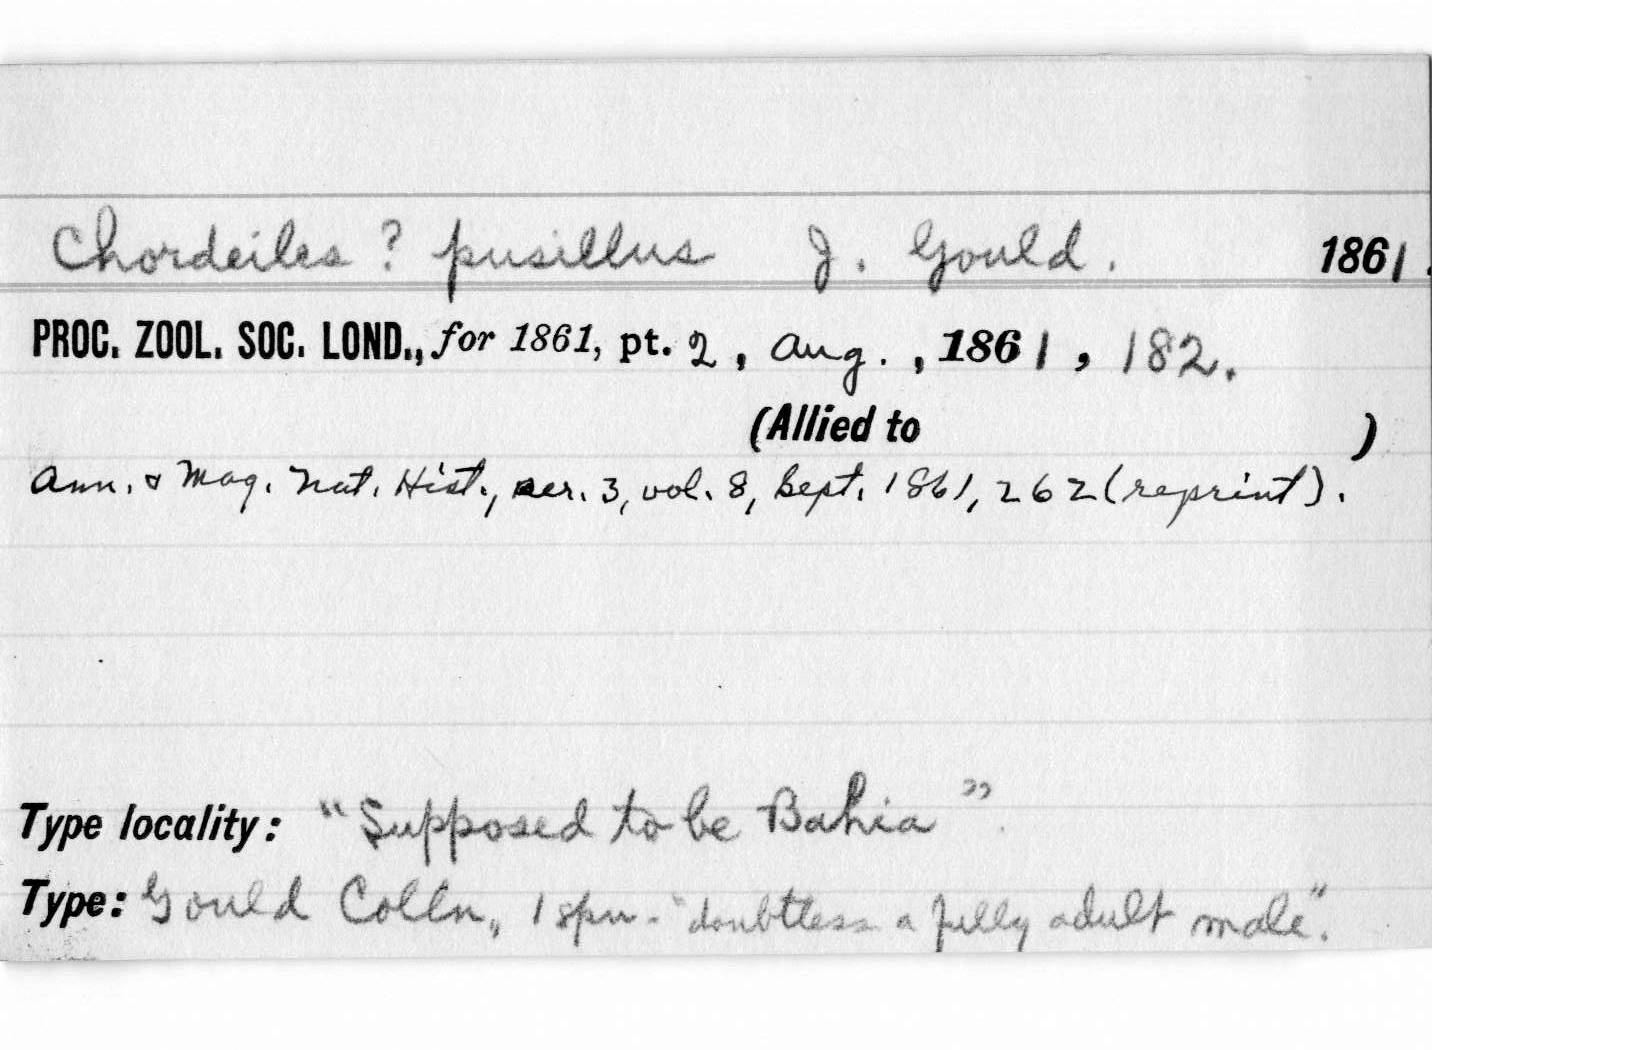 Chordeiles ? pusillus J. Gould. 1861.
PROC. ZOOL. SOC. LOND., for 1861, pt. 2, Aug., 1861, 182.
(Allied to )
Ann. & Mag. Nat. Hist., ser. 3, vol. 8, Sept. 1861, 262 (reprint).
Type locality: "Supposed to be Bahia".
Type: Gould Colln., 1 spm - "doubtless a fully adult male".